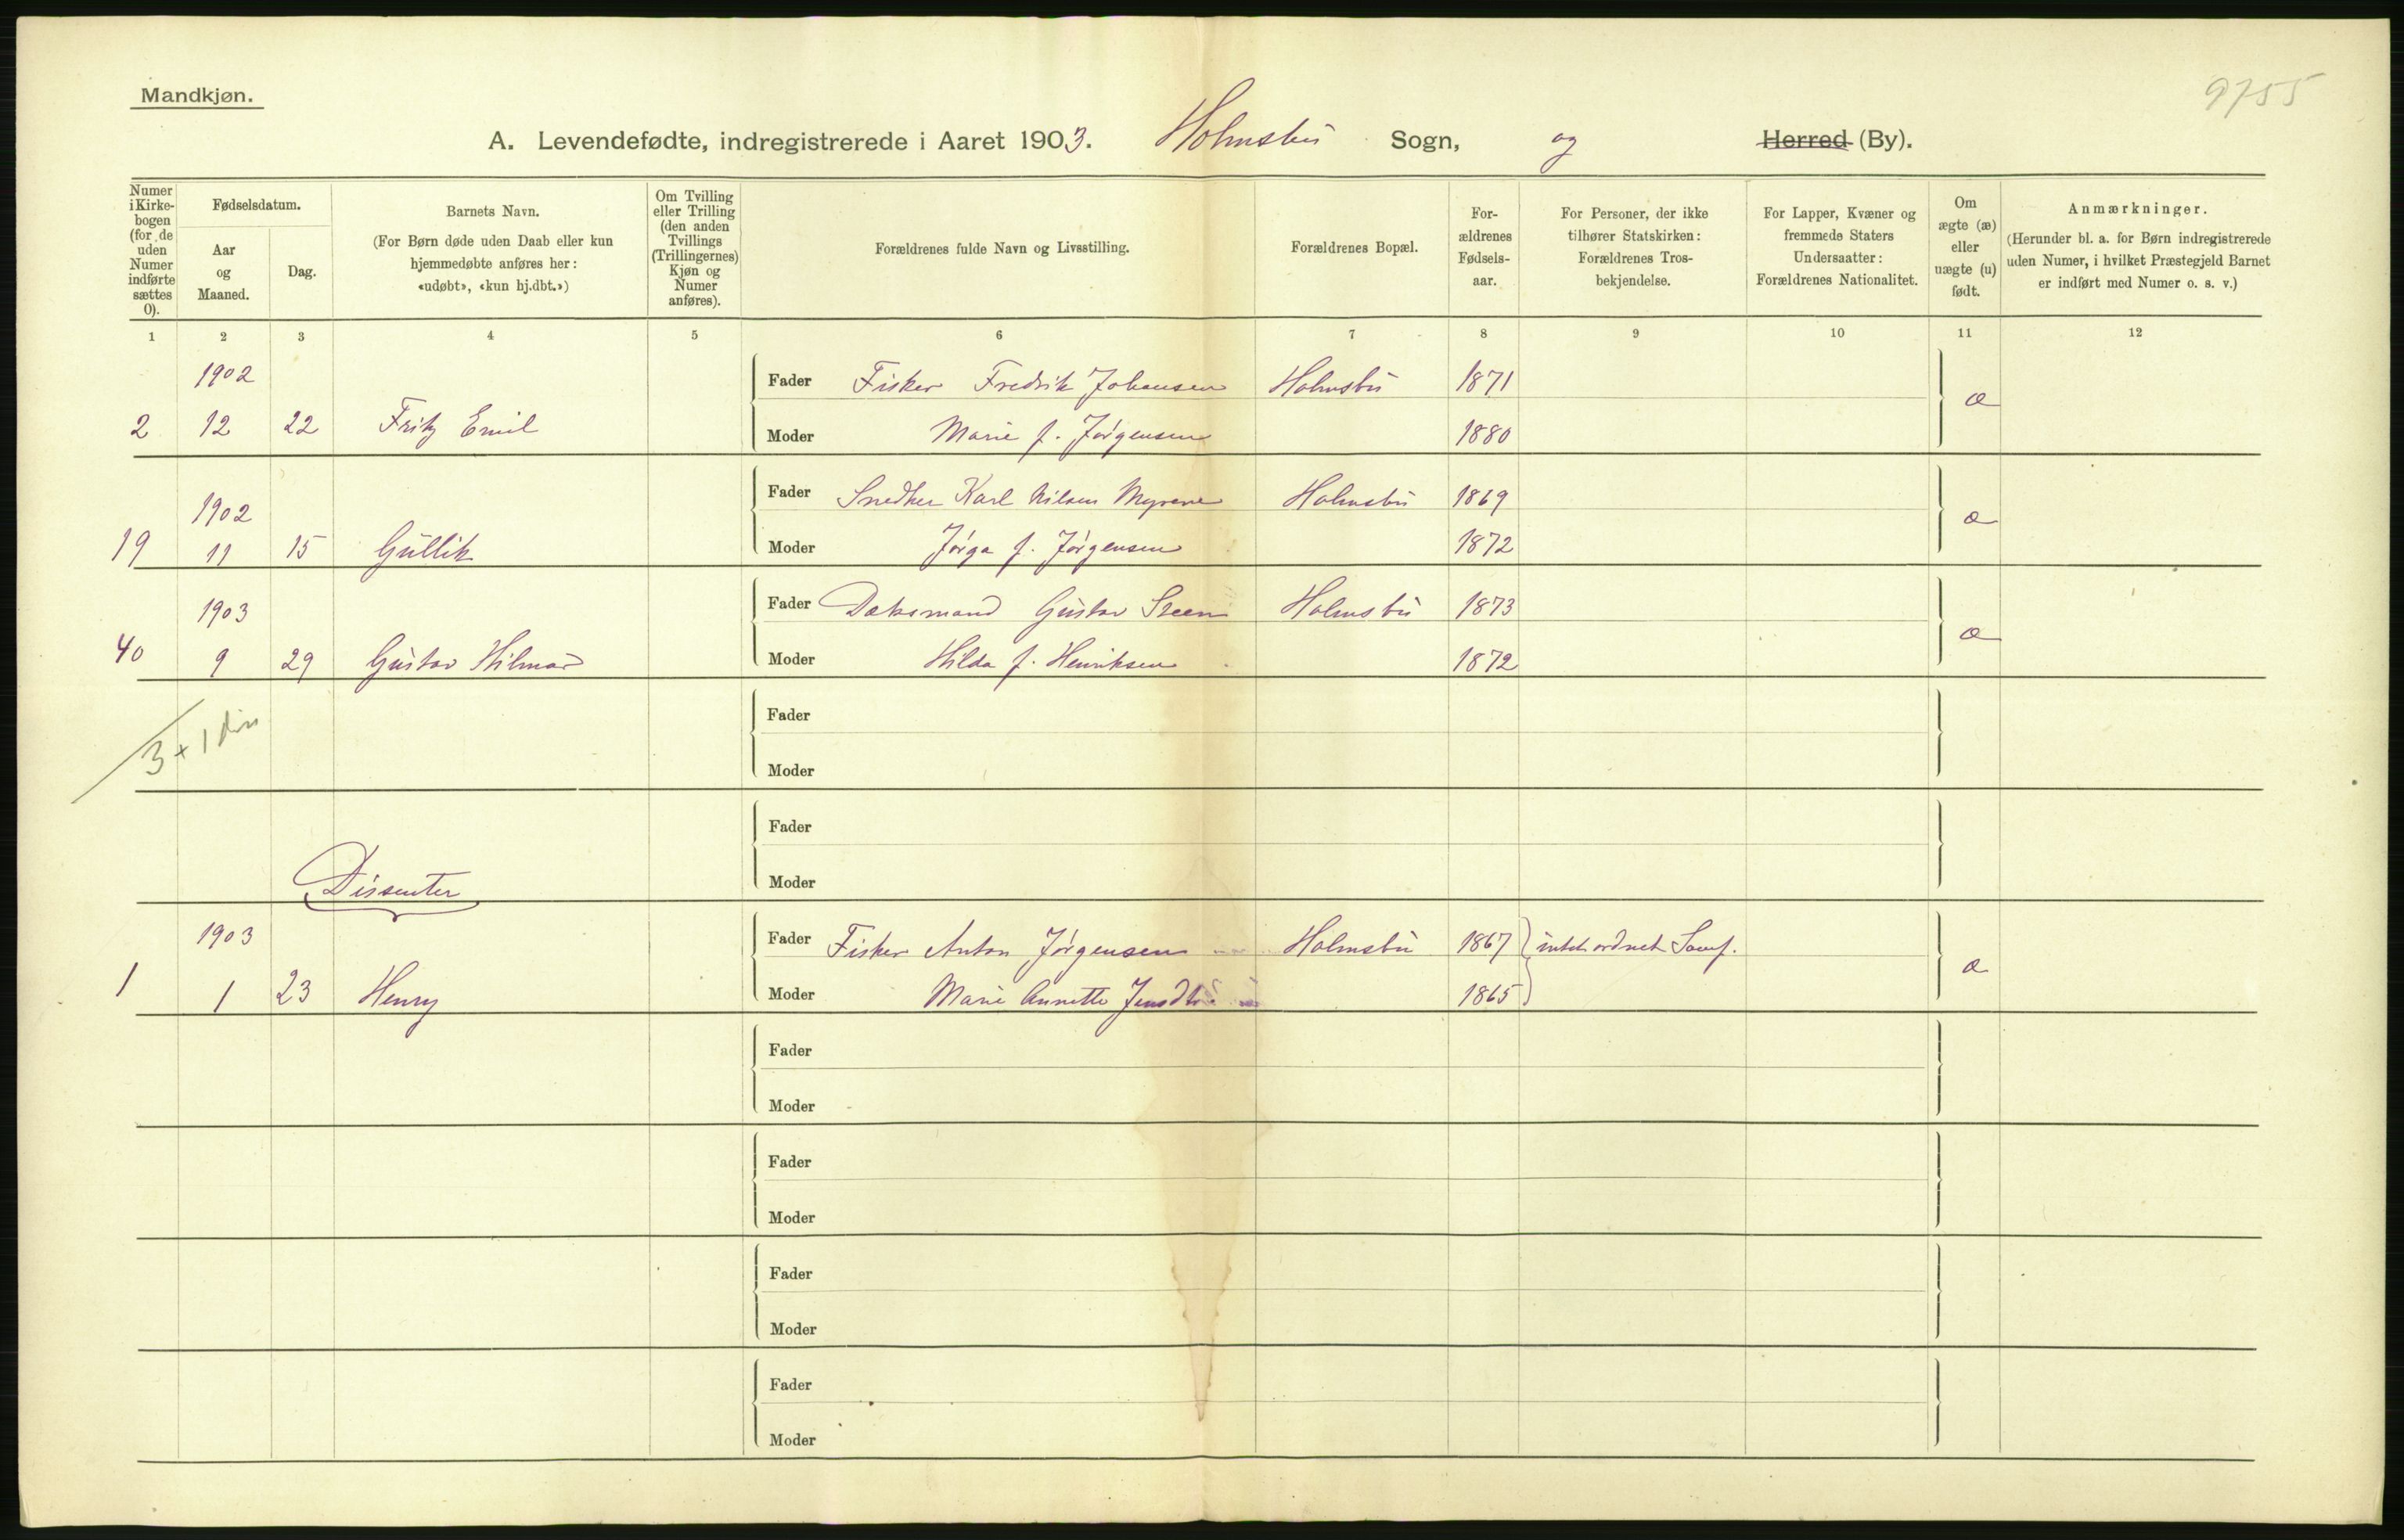 Mandkjøn.
9755
A. Levendefødte, indregistrerede i Aaret 1903. Holmsbu Sogn, og Herred (By).
Numer i Kirke-bogen (for de uden Numer indførte sættes 0).
Fødselsdatum.
Aar og Maaned.
Dag.
Barnets Navn.
(For Børn døde uden Daab eller kun hjemmedøbte anføres her: «udøbt», «kun hj.dbt.»)
Om Tvilling eller Trilling (den anden Tvillings (Trillingernes) Kjøn og Numer anføres).
Forældrenes fulde Navn og Livsstilling.
Forældrenes Bopæl.
For-ældrenes Fødsels-aar.
For Personer, der ikke tilhører Statskirken: Forældrenes Tros-bekjendelse.
For Lapper, Kvæner og fremmede Staters Undersaatter: Forældrenes Nationalitet.
Om ægte (æ) eller uægte (u) født.
Anmærkninger.
(Herunder bl. a. for Børn indregistrerede uden Numer, i hvilket Præstegjeld Barnet er indført med Numer o. s. v.)
1 2 3 4 5 6 7 8 9 10 11 12
1902 Fader Fisker Fredrik Johansen Holmsbu 1871 æ
2 12 22 Fritz Emil Moder Marie f. Jørgensen 1880
1902 Fader Snedker Karl Nilsen Myrene Holmsbu 1869 æ
19 11 15 Gullik Moder Jørga f. Jørgensen 1872
1903 Fader Dæksmand Gustav Steen Holmsbu 1873 æ
40 9 29 Gustav Hilmar Moder Hilda f. Henriksen 1872
Fader
3 + 1 diss
Moder
Fader
Dissenter Moder
1903 Fader Fisker Anton Jørgensen Holmsbu 1867 intet ordnet Samf. æ
1 1 23 Henry Moder Marie Annette 1865
Fader
Moder
Fader
Moder
Fader
Moder
Fader
Moder